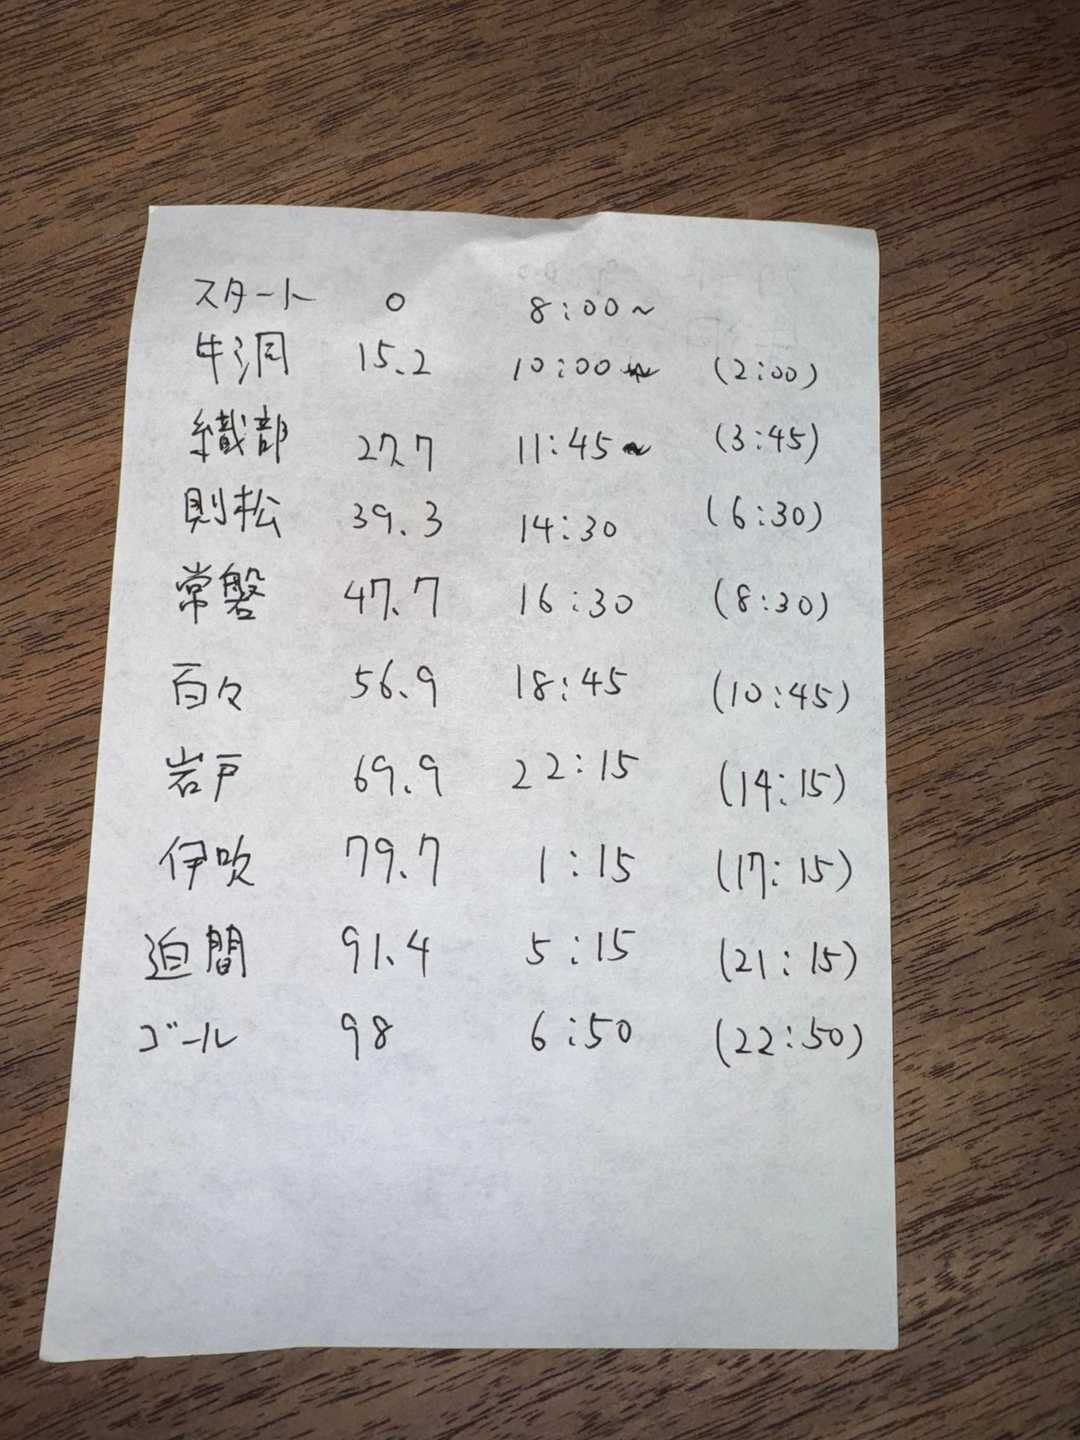 スタート 0 8:00~
牛洞 15.2 10:00 (2:00)
織部 27.7 11:45 (3:45)
則松 39.3 14:30 (6:30)
常磐 47.7 16:30 (8:30)
百々 56.9 18:45 (10:45)
岩戸 69.9 22:15 (14:15)
伊吹 79.7 1:15 (17:15)
迫間 91.4 5:15 (21:15)
ゴール 98 6:50 (22:50)